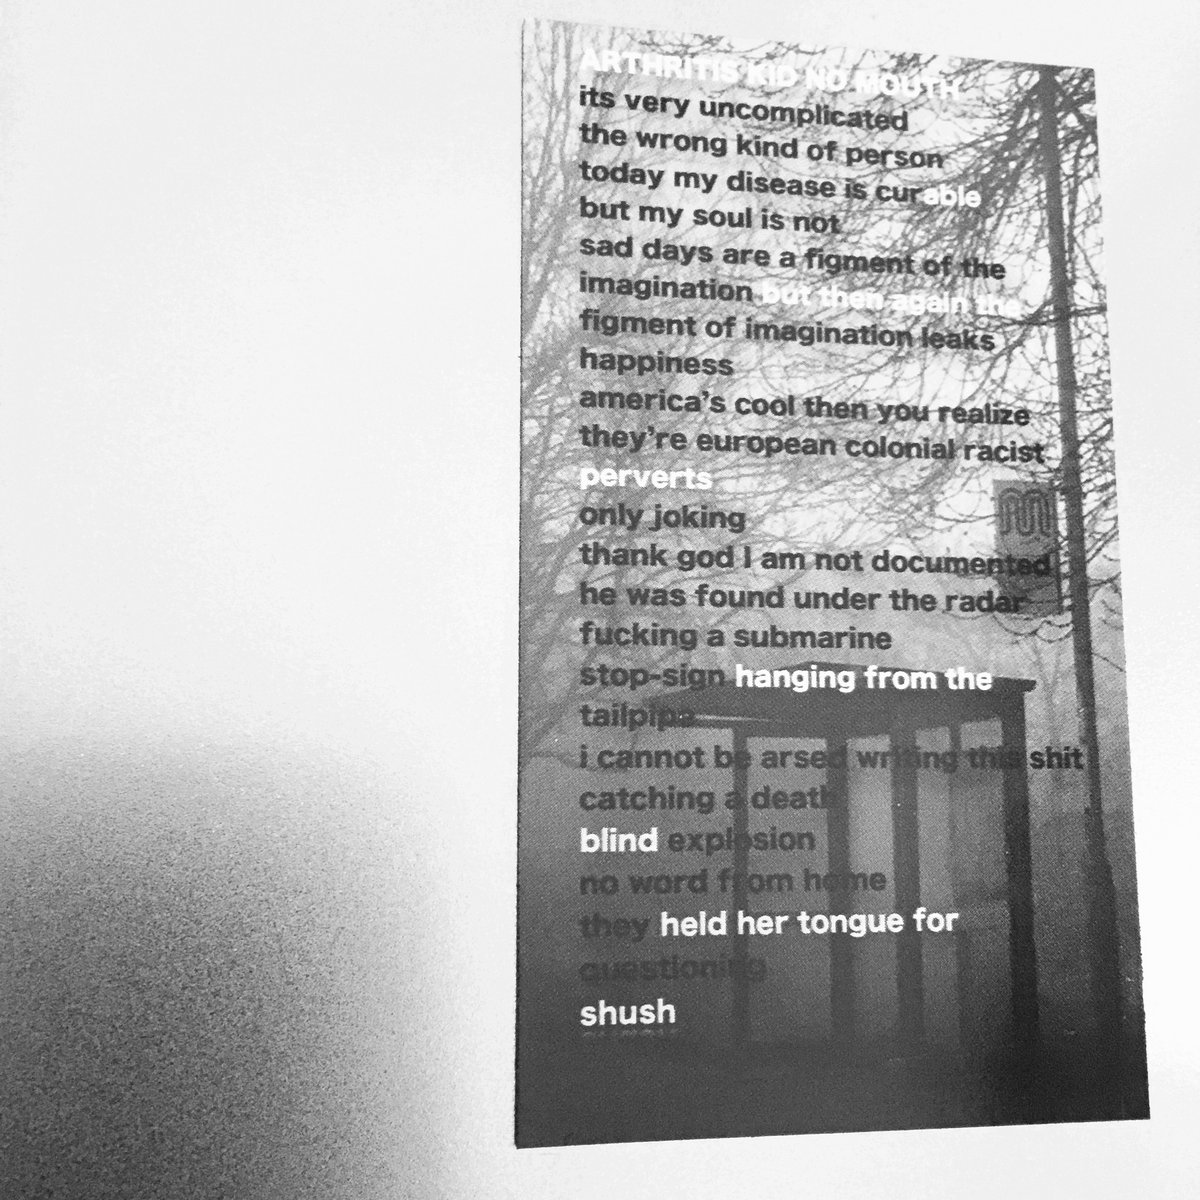 ARTHRITIS KID NO MOUTH
its very uncomplicated
the wrong kind of person
today my disease is curable
but my soul is not
sad days are a figment of the
imagination but then again the
figment of imagination leaks
happiness
america's cool then you realize
they're european colonial racist
perverts
only joking
thank god I am not documented
he was found under the radar
fucking a submarine
stop-sign hanging from the
tailpipe
i cannot be arsed writing this shit
catching a death
blind explosion
no word from home
they held her tongue for
questioning
shush